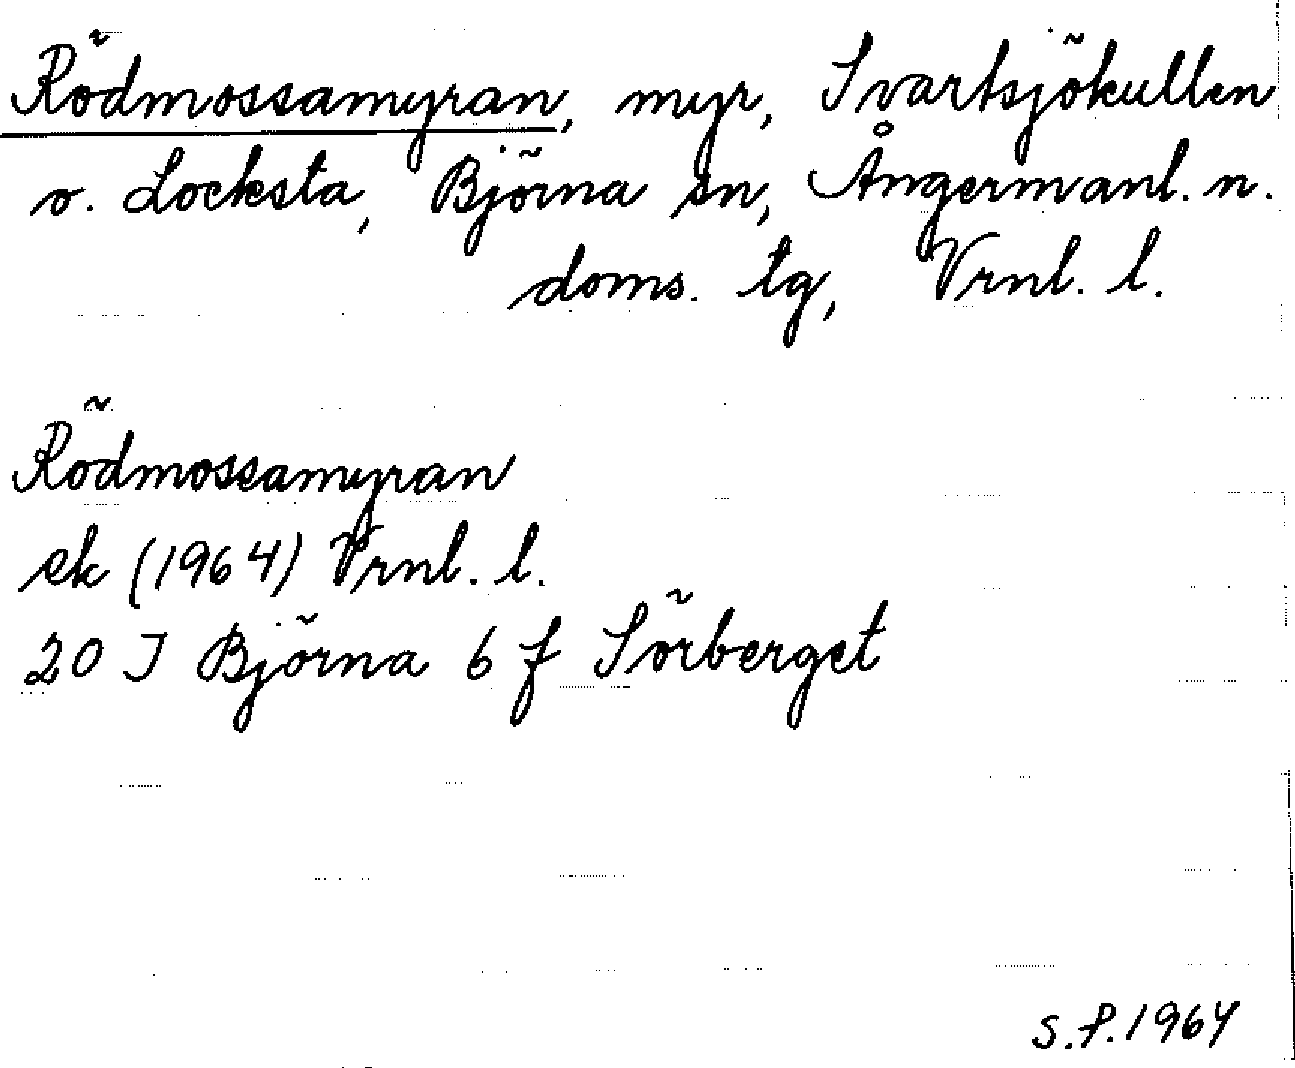 Rödmossamyran, myr, Svartsjökullen
o. Locksta, Björna sn, Ångermanl. n.
doms. tg, Vrnl. l.
Rödmossamyran
ek (1964) Vrnl. l.
20 I Björna 6 f Sörberget
S.P. 1964